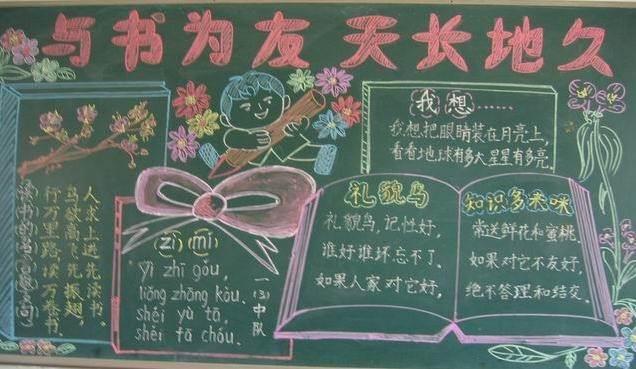 与书为友 天长地久
读书的名言警句
人求上进先读书.
鸟欲高飞先振翅,
行万里路读万卷书.
(zì)(mí)
Yì zhī gǒu,
liǎng zhāng kǒu.
shéi yù tā,
shéi fā chóu.
一(3)中队
我想……
我想把眼睛装在月亮上,
看看地球有多大星星有多亮.
礼貌鸟
礼貌鸟,记性好,
谁好谁坏忘不了.
如果人家对它好,
知识多来咪
常送鲜花和蜜桃.
如果对它不友好,
绝不答理和结交.